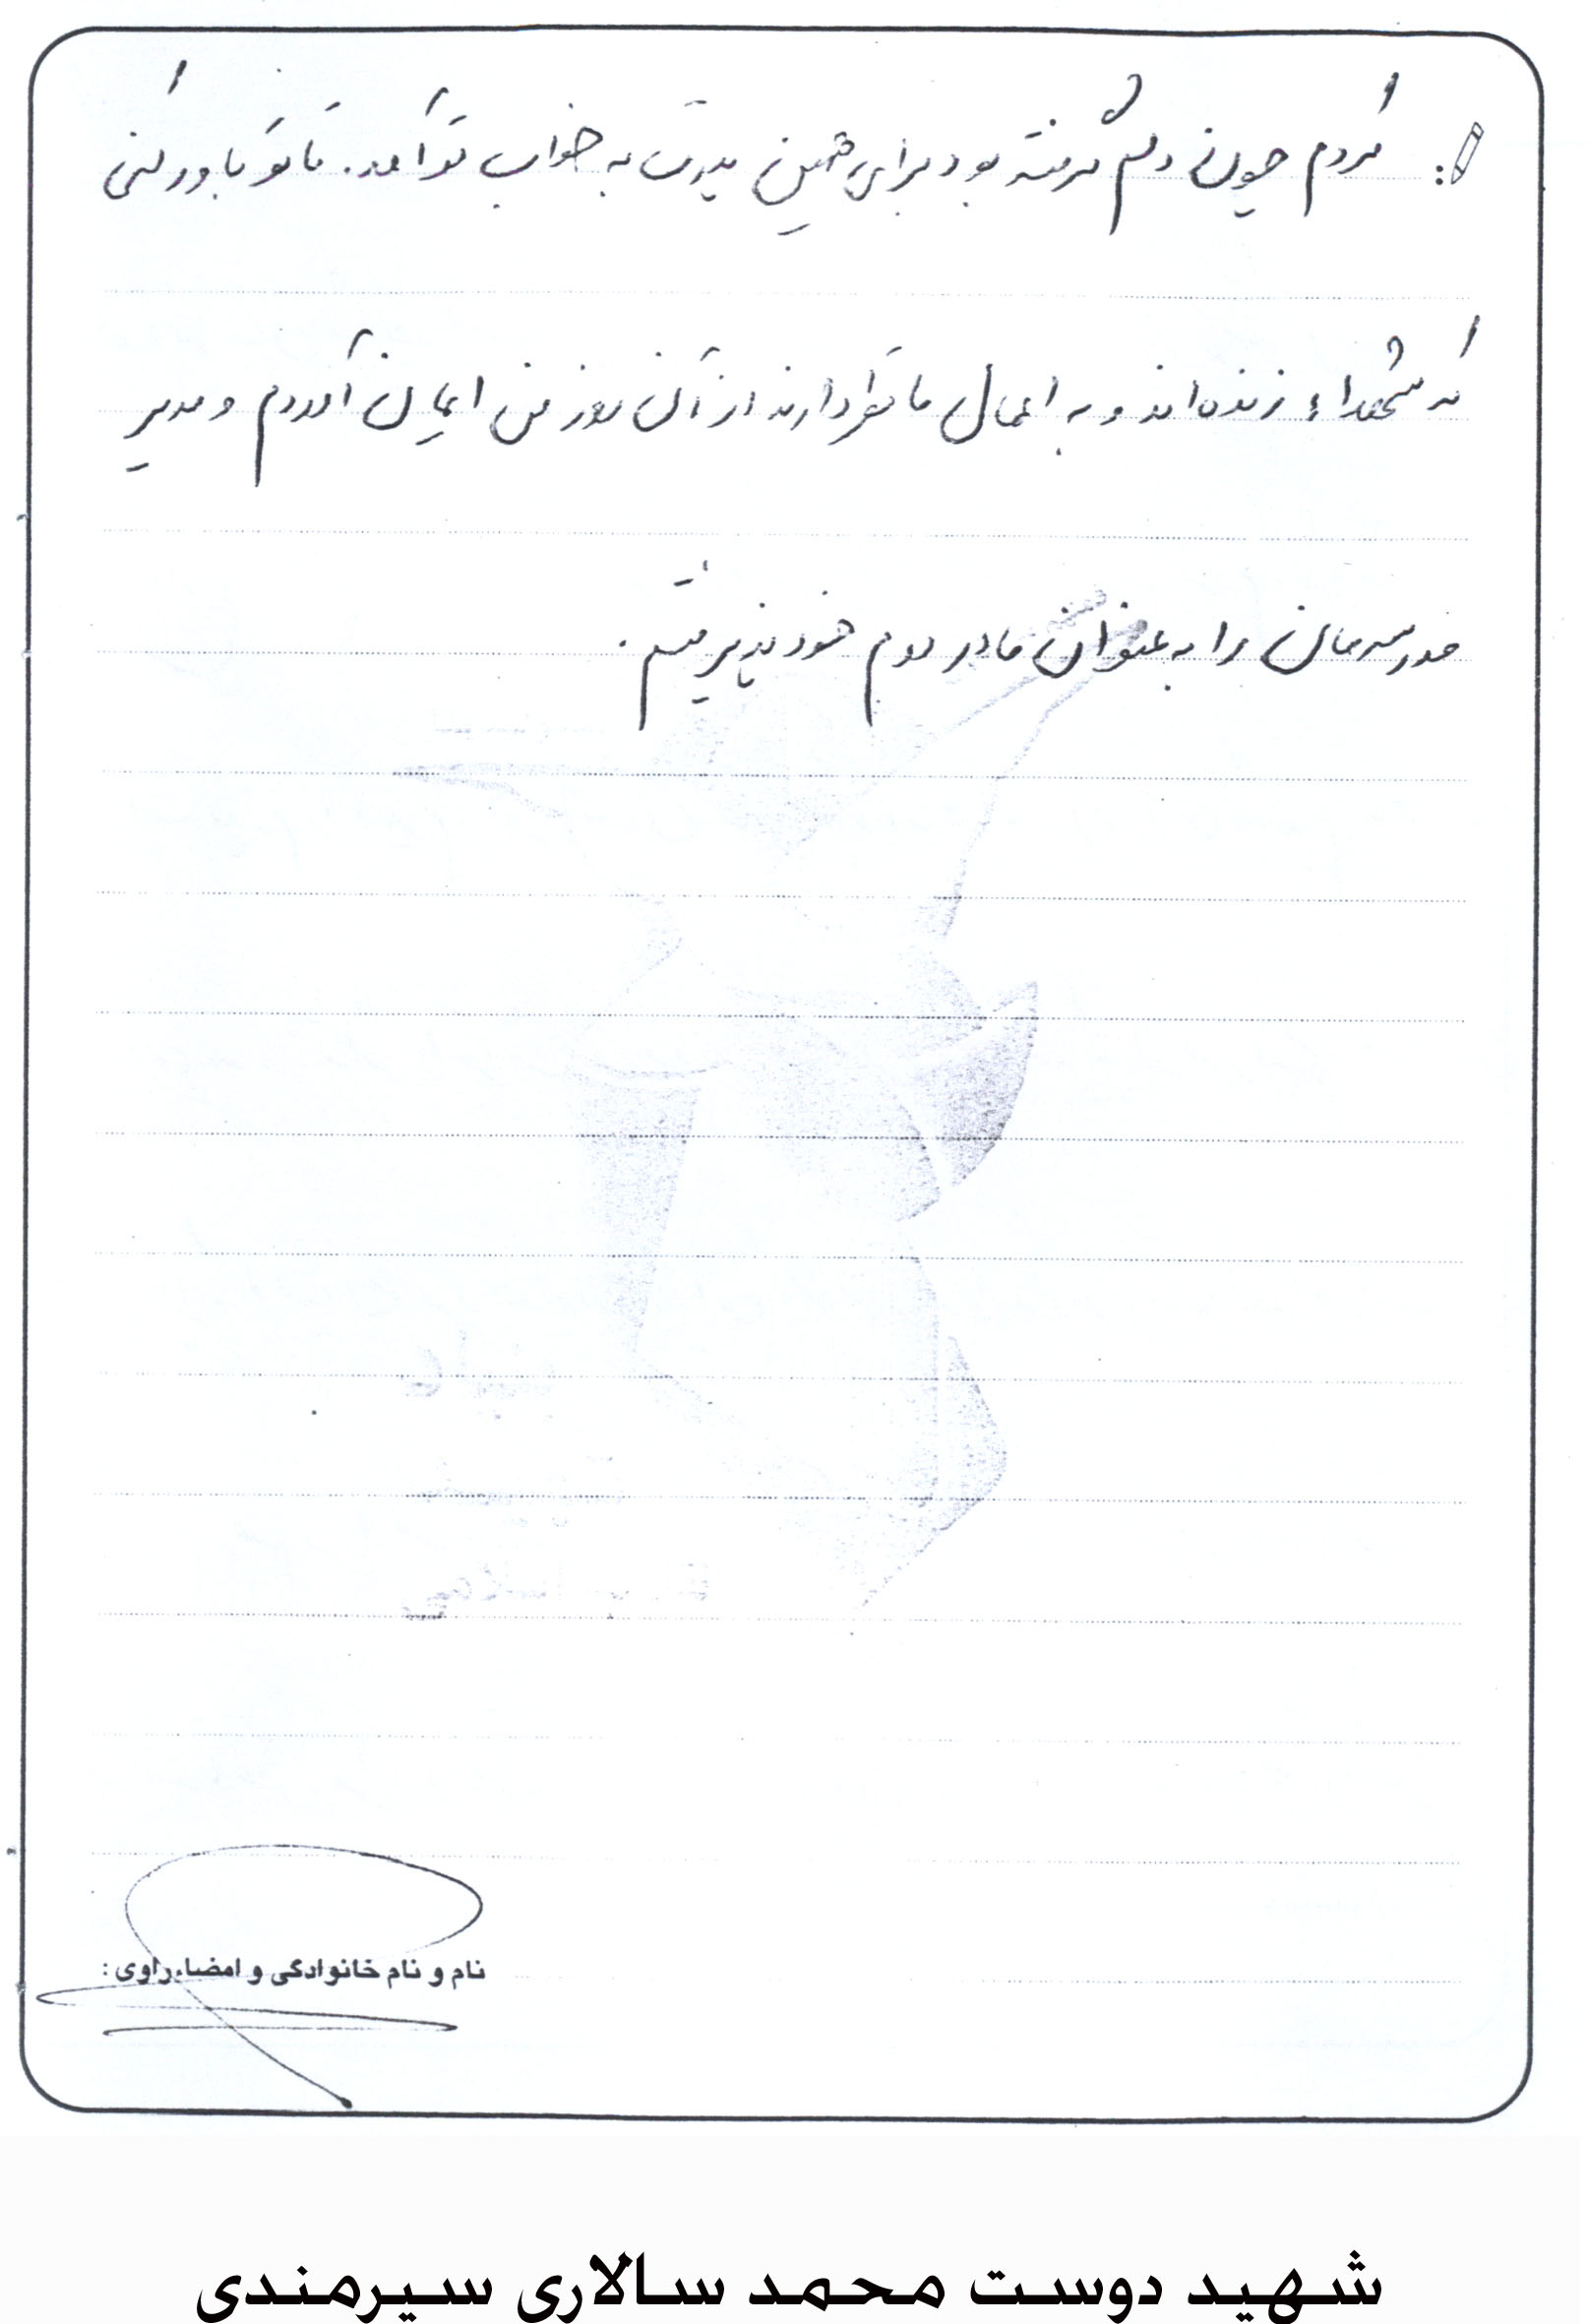 کردم چون دلم گرفته بود برای همین پدرت به خواب تو آمد. تا تو باور کنی
که شهداء زنده اند و به اعمال ما نظر دارند از آن روز من ایمان آوردم و مدیر
مدرسه مان را به عنوان مادر دوم خود پذیرفتم.
نام و نام خانوادگی و امضاء راوی:
شهید دوست محمد سالاری سیرمندی